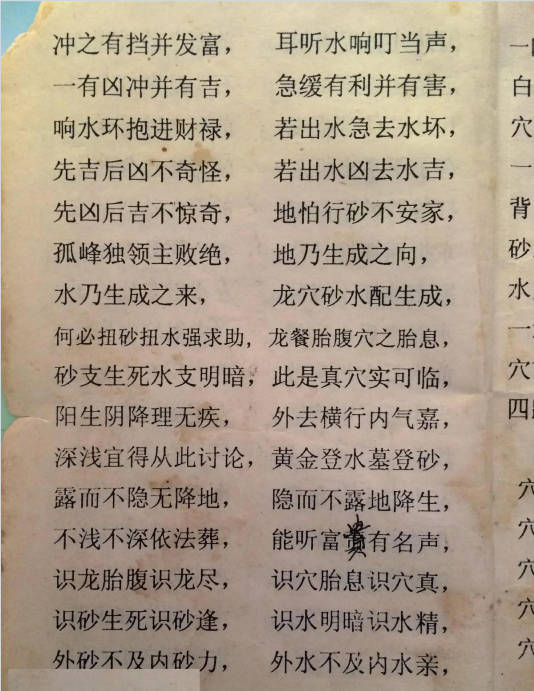 冲之有挡并发富， 耳听水响叮当声，
一有凶冲并有吉， 急缓有利并有害，
响水环抱进财禄， 若出水急去水坏，
先吉后凶不奇怪， 若出水凶去水吉，
先凶后吉不惊奇， 地怕行砂不安家，
孤峰独领主败绝， 地乃生成之向，
水乃生成之来， 龙穴砂水配生成，
何必扭砂扭水强求助， 龙餐胎腹穴之胎息，
砂支生死水支明暗， 此是真穴实可临，
阳生阴降理无疾， 外去横行内气嘉，
深浅宜得从此讨论， 黄金登水墓登砂，
露而不隐无降地， 隐而不露地降生，
不浅不深依法葬， 能听富贵有名声，
识龙胎腹识龙尽， 识穴胎息识穴真，
识砂生死识砂逢， 识水明暗识水精，
外砂不及内砂力， 外水不及内水亲，
一
白
穴
一
背
砂
水
一
穴
四
穴
穴
穴
穴
穴